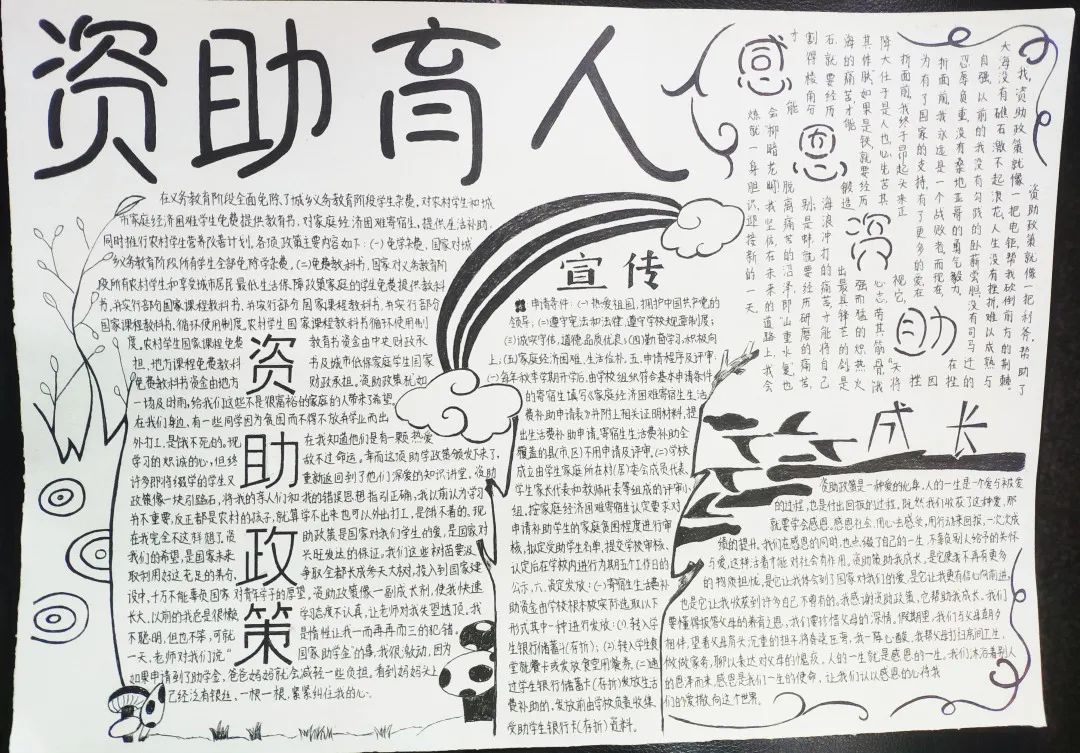 资助育人
在义务教育阶段全面免除了城乡义务教育阶段学生杂费，对农村学生和城
市家庭经济困难学生免费提供教育书，对家庭经济困难寄宿生，提供生活补助，
同时推行农村学生营养改善计划，各项政策主要内容如下：(一)免学杂费，国家对城
乡义务教育阶段所有学生全部免除学杂费。(二)免费教科书，国家对义务教育阶
段所有农村学生和享受城市居民最低生活保障政策家庭的学生免费提供教科
书，并实行部的国家课程教科书，并实行部分国家课程教科书，并实行部分
国家课程教科书，循环使用制度，农村学生国家课程教科书循环使用制
度，农村学生国家课程免费 教育书资金由中央财政承
担，地方课程免费教科 书及城市低保家庭学生国家
免费教科书资金由地方 财政承担，资助政策就如
一场及时雨，给我们这些不是很富裕的家庭的人带来了希望，
在我们身边，有一些同学因为贫困而不得不放弃学业而出
外打工，是饿不死的。现 在我知道他们是有一颗热爱
学习的炽诚的心，但终 敌不过命运。幸而这项助学政策颁发下来了，
许多即将缀学的学生又 重新返回到了他们深爱的知识讲堂。资助
政策像一块引路石，将我的亲人们和我的错误思想指引正确，我以前认为学习
并不重要，反正都是农村的孩子，就算学不出来也可以外出打工，是饿不着的，现
在我完全不这样想了，资 助政策是国家对我们学生的爱，是国家对
我们的希望，是国家未来 兴旺发达的保证，我们这些树苗要汲
取利用好这充足的养分， 争取全都长成参天大树，投入到国家建
设中，千万不能辜负国家对青年学子的厚望。资助政策像一副成长剂，使我快速
长大，以前的我总是很懒 学习态度不认真，让老师对我失望透顶，我
不聪明，但也不笨，可就 是惰性让我一而再再而三的犯错。
一天，老师对我们说“ 国家助学金”的事，我很激动，因为
如果申请到了助学金，爸爸妈妈就会减轻一些负担。看到妈妈头上
已经泛有银丝，一根一根，紧紧纠住我的心。
资助政策
宣传
申请条件：(一)热爱祖国，拥护中国共产党的
领导；(二)遵守宪法和法律，遵守学校规章制度；
(三)诚实守信，道德品质优良；(四)勤奋学习，积极向
上；(五)家庭经济困难，生活俭朴。五、申请程序及评审：
(一)每年秋季学期开学后，由学校组织符合基本申请条件
的寄宿生填写《家庭经济困难寄宿生生活
费补助申请表》并附上相关证明材料，提
出生活费补助申请。寄宿生生活费补助全
覆盖的县(市区)不用申请及评审。(二)学校
成立由学生家庭所在村(居)委会成员代表、
学生家长代表和教师代表等组成的评审小
组，按家庭经济困难寄宿生认定要求对
申请补助学生的家庭贫困程度进行审
核，拟定受助学生名单，提交学校审核、
认定后在学校内进行为期五个工作日的
公示。六、资定发放：(一)寄宿生生活费补
助资金由学校根据实际选取以下
形式其中一种进行发放：(1)转入学
生银行储蓄卡(存折)；(2)转入学生食
堂就餐卡或发放食堂用餐券。(二)通
过学生银行储蓄卡(存折)发放生活
费补助的，发放前由学校负责收集
受助学生银行卡(存折)资料。
感恩资助
资助政策就像一把利斧，帮助了
我，资助政策就像一把电锯，帮我砍倒前方的荆棘。
大海没有礁石激不起浪花，人生没有挫折难以成熟。与
自强以前的我没有勾践的卧薪尝胆，没有司马迁的
忍辱负重，没有桑地亚哥的勇气毅力，在挫
折面前，我永远是一个战败者，而现在，因
为有了国家的支持，有了更多的爱，在挫
折面前，我终于昂起头来正视它，“天将
降大任于是人也，必先苦其心志，劳其筋骨，饿
其体肤”如果是铁，就要经历锻造强而猛的炽热火
海的痛苦，才能出最具锋芒的剑，是
石，就要经历海浪冲打的痛苦才能将自己
割得棱角分别，是蚌，就要经历研磨的痛苦
才能脱离痛苦的沼泽，即“山重水复”也
会“柳暗花明”，我坚信在未来的道路上，我会
炼就一身胆识，迎接新的一天
成长
资助政策是一种爱的化身，人的一生，是一个爱与被爱
的过程，也是付出回报的过程，既然我们收获了这种爱，那
就要学会感恩，感恩社会，用心去感受，用行动来回报，一次次成
绩的提升。我们在感恩的同时，也点缀了自己的一生，不辜负别人给予的关怀
与爱，这样活着才能对社会有作用。资助策助我成长，是它使我不再有更多
的物质担忧，是它让我体会到了国家对我们的爱，是它让我更有信心向前进，
也是它让我收获到许多自己不曾有的。我感谢资助政策，它帮助我成长。我们
要懂得报答父母的养育之恩，我们要珍惜父母的深情。假期里，我们与父母朝夕
相伴，望着父母肩头沉重的担子将脊背压弯，我一阵心酸，我帮父母打扫房间卫生，
做做家务，聊以表达对父母的愧疚。人的一生就是感恩的一生。我们沐浴着别人
的恩泽而来，感恩是我们一生的使命，让我们以感恩的心待我
们的爱撒向这个世界。